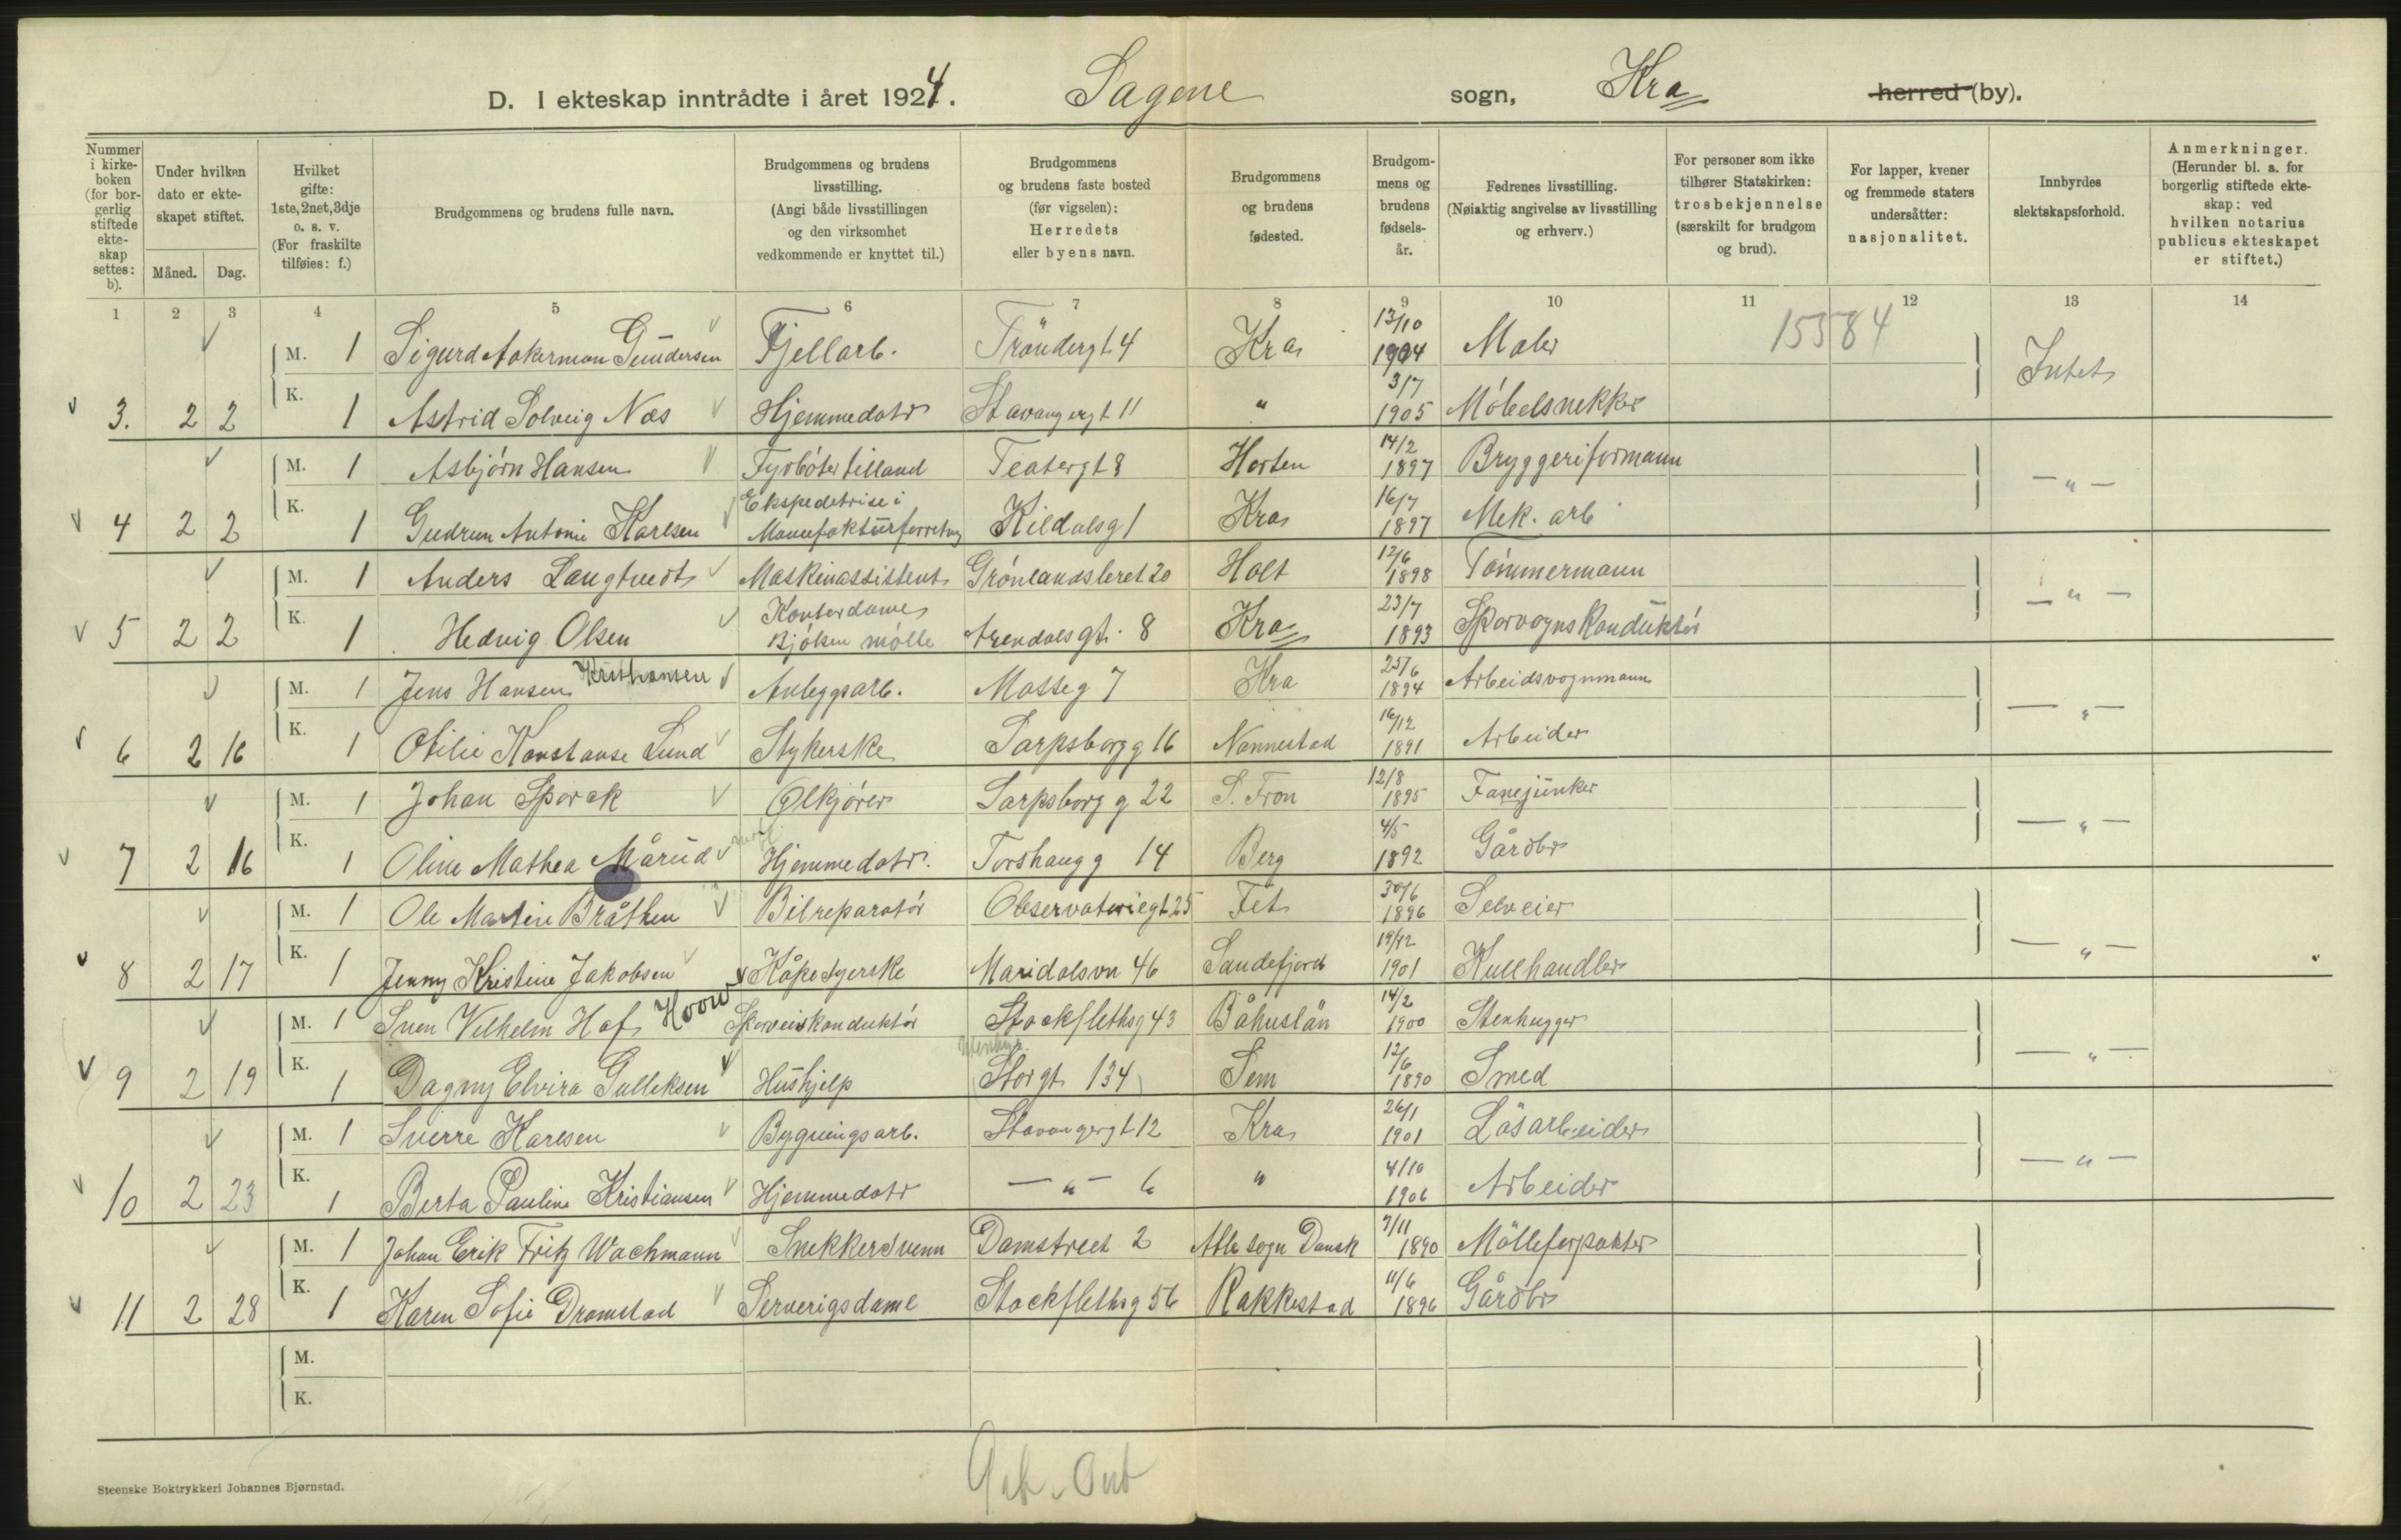 D. I ekteskap inntrådte i året 1924. Sagene sogn, Kra herred (by).
Nummer i kirkeboken (for borgerlig stiftede ekteskap settes: b).
Under hvilken dato er ekteskapet stiftet.
Måned. Dag.
Hvilket gifte: 1ste, 2net, 3dje o. s. v. (For fraskilte tilføies: f.)
Brudgommens og brudens fulle navn.
Brudgommens og brudens livsstilling. (Angi både livsstillingen og den virksomhet vedkommende er knyttet til.)
Brudgommens og brudens faste bosted (før vigselen): Herredets eller byens navn.
Brudgommens og brudens fødested.
Brudgommens og brudens fødselsår.
Fedrenes livsstilling. (Nøiaktig angivelse av livsstilling og erhverv.)
For personer som ikke tilhører Statskirken: trosbekjennelse (særskilt for brudgom og brud).
For lapper, kvener og fremmede staters undersåtter: nasjonalitet.
Innbyrdes slektskapsforhold.
Anmerkninger. (Herunder bl. a. for borgerlig stiftede ekteskap: ved hvilken notarius publicus ekteskapet er stiftet.)
1 2 3 4 5 6 7 8 9 10 11 12 13 14
M. 1 Sigurd Aakerman Gundersen Fjellarb. Tröndergt 4 Kra 13/10 1904 Maler 15584 Intet
3. 2 2 K. 1 Astrid Solveig Næs Hjemmedatr Stavangergt 11 " 3/7 1905 Möbelsnekker
M. 1 Asbjörn Hansen Fyrböter tilland Teatergt 8 Horten 14/2 1897 Bryggeriformann — " —
4 2 2 K. 1 Gudrun Antonie Karlsen Ekspedetrise i Manufakturforretng Kildalsg 1 Kra 16/7 1897 Mek. arb
M. 1 Anders Langtvedt Maskinassistent Grönlandsleret 20 Holt 12/6 1898 Tömmermann — " —
5 2 2 K. 1 Hedvig Olsen Kontordame Bjölsen mölle Arendalsgt. 8 Kra 23/7 1893 Sporvogns Konduktör
M. 1 Jens Hansen Kristiansen Anleggsarb. Mosseg 7 Kra 25/6 1894 Arbeidsvognmann — " —
6 2 16 K. 1 Otilie Konstanse Lund Strykerske Sarpsborgg 16 Nannestad 16/12 1891 Arbeider
M. 1 Johan Sporck Ölkjörer Sarpsborg g 22 S. Fron 12/8 1895 Fanejunker — " —
7 2 16 K. 1 Oline Mathea Mårud Hjemmedatr. Torshaug g 14 Berg 4/5 1892 Gårdbr
M. 1 Ole Martin Bråthen Bilreparatör Observatoriegt 25 Fet 30/6 1896 Selveier — " —
8 2 17 K. 1 Jenny Kristine Jakobsen Kåpesyerske Maridalsvn 46 Sandefjord 19/12 1901 Kullhandler
M. 1 Sven Vilhelm Hof Hoow Sporveiskonduktör Stockflethsg 43 Båhuslän 14/2 1900 Stenhugger — " —
9 2 19 K. 1 Dagny Elvira Gulleksen Hushjelp Storgt 134 Sem 12/6 1890 Smed
M. 1 Sverre Karlsen Bygningsarb. Stavangergt 12 Kra 26/1 1901 Lösarbeider — " —
10 2 23 K. 1 Berta Pauline Kristiansen Hjemmedatr — " — 6 " 4/10 1906 Arbeider
M. 1 Johan Erik Fritz Wachmann Snekkersvenn Damstreet 2 sogn Dansk 7/11 1890 Mölleforpakter
11 2 28 K. 1 Karen Sofie Dramstad Serverigsdame Stockflethsg 56 Rakkestad 11/6 1896 Gårdbr
M.
K.
Steenske Boktrykkeri Johannes Bjørnstad.